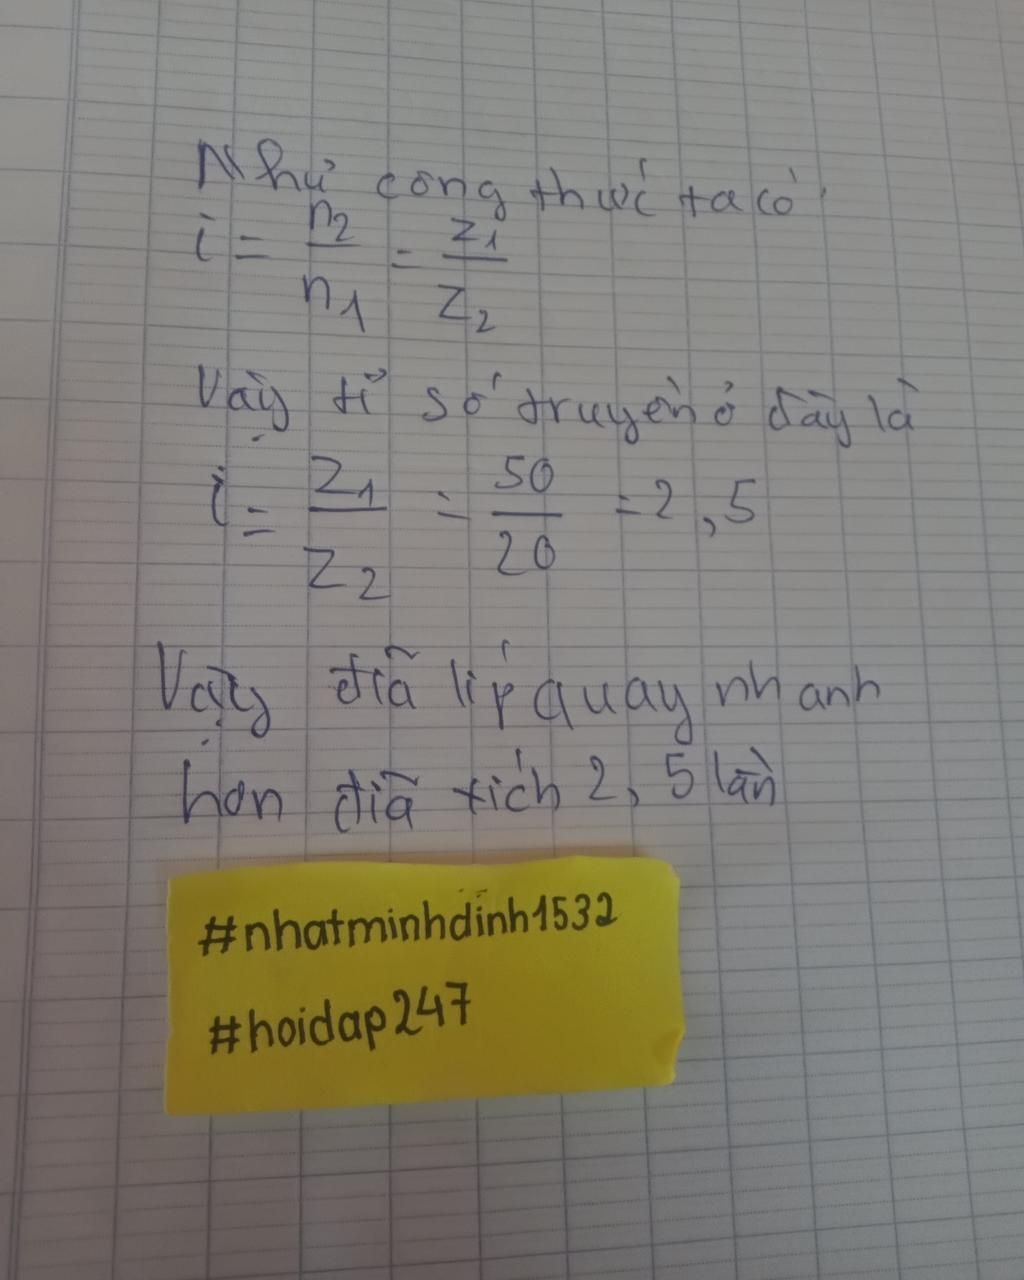 Như công thức ta có
i = n2/n1 = z1/z2
Vậy tỉ số truyền ở đây là
i = Z1/Z2 = 50/20 = 2,5
Vậy đĩa líp quay nhanh
hơn đĩa xích 2,5 lần
#nhatminhdinh1532
#hoidap247